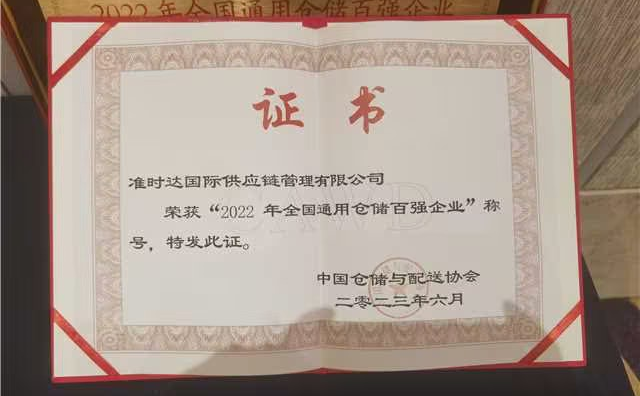 2022年全国通用仓储百强企业
证书
准时达国际供应链管理有限公司
荣获“2022 年全国通用仓储百强企业”称
号，特发此证。
CAWD
中国仓储与配送协会
二零二三年六月